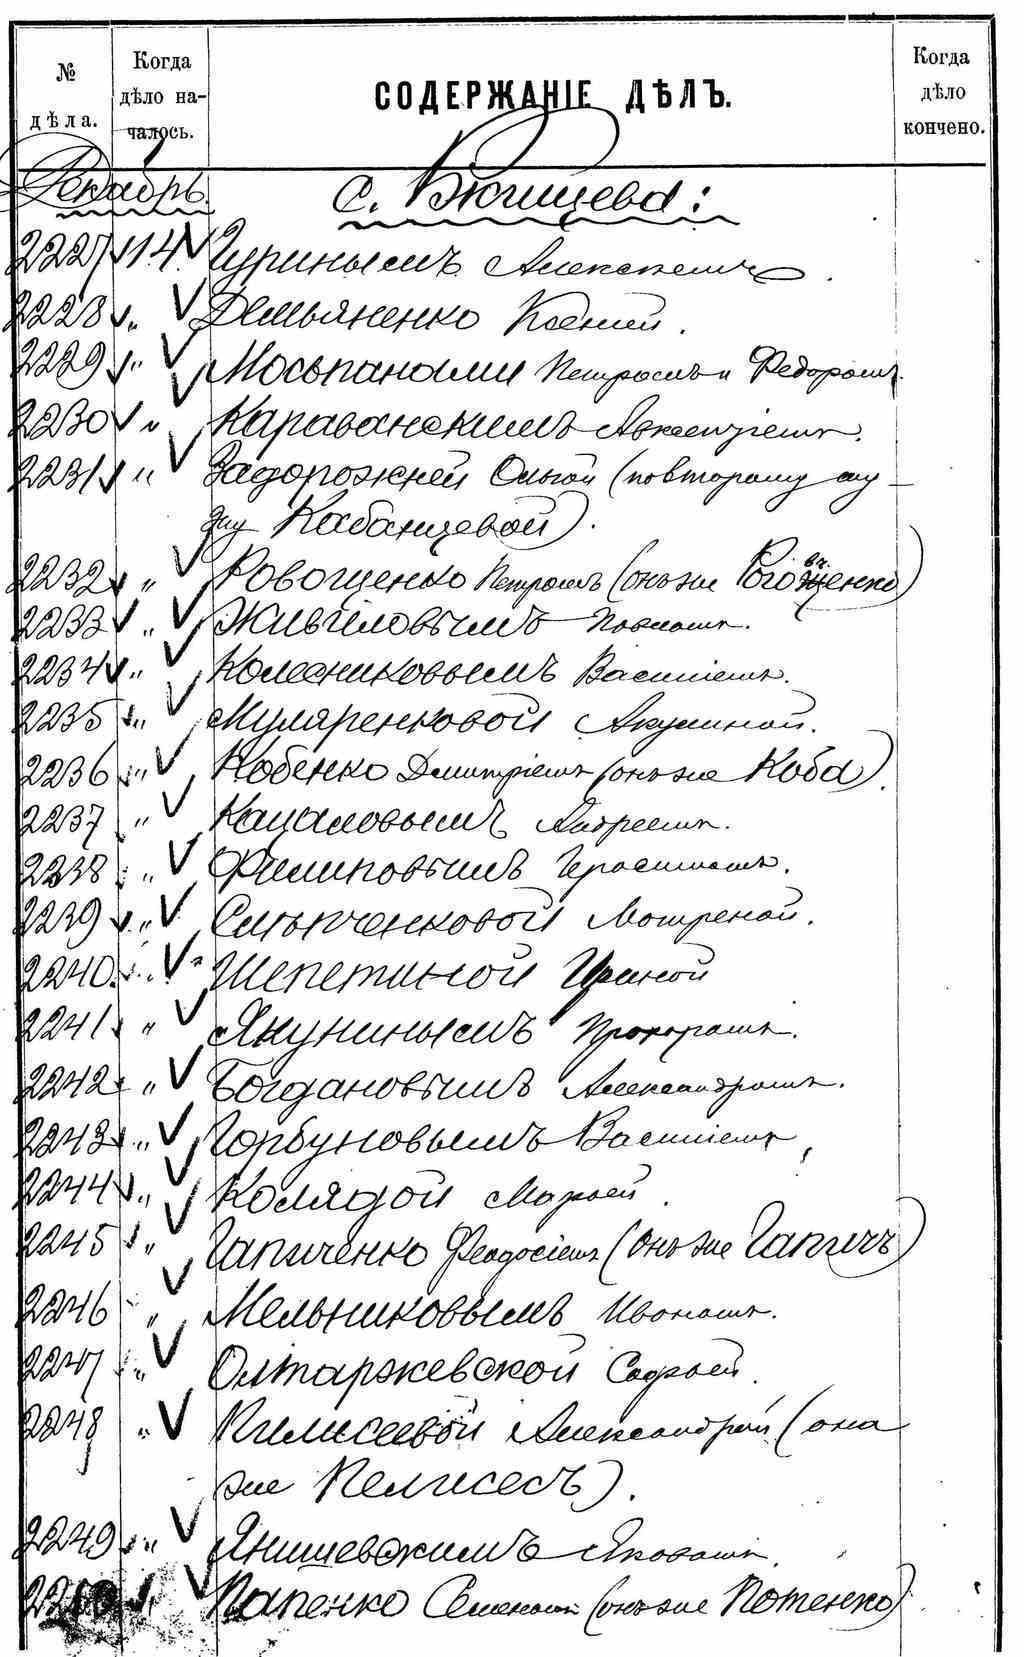 № дѣла.
Когда дѣло началось.
СОДЕРЖАНІЕ ДѢЛЪ.
Когда дѣло кончено.
Декабрь
с. Вжищева:
2227 14 Гуринымъ Алексѣемъ.
2228 " Демьяненко Ксеніей.
2229 " Мосьпанами Петромъ и Федоромъ.
2230 " Караванскимъ Авксентіемъ.
2231 " Задорожней Ольгой (по второму му
жу Кабанцевой).
2232 " Ровощенко Петромъ (онъ же Рогощенко)
2233 " Живиловымъ Павломъ.
2234 " Колесниковымъ Василіемъ.
2235 " Муляренковой Акулиной.
2236 " Кобенко Дмитріемъ (онъ же Коба).
2237 " Кацаловымъ Андреемъ.
2238 " Филиповымъ Герасимомъ.
2239 " Мотреной.
2240 " Шепетиной Ириной
2241 " Якунинымъ Прохоромъ.
2242 " Богдановымъ Александромъ.
2243 " Горбуновымъ Василіемъ,
2244 " Колядой Марьей.
2245 " Гапиченко Феодосіемъ (онъ же Гапичъ)
2246 " Мельниковымъ Иваномъ.
2247 " Олтаржевской Софьей.
2248 " Килисеевой Александрой (она
же Келисесъ).
2249 " Янишевскимъ Яковомъ.
2250 " Папенко Семеномъ (онъ же Потенко)